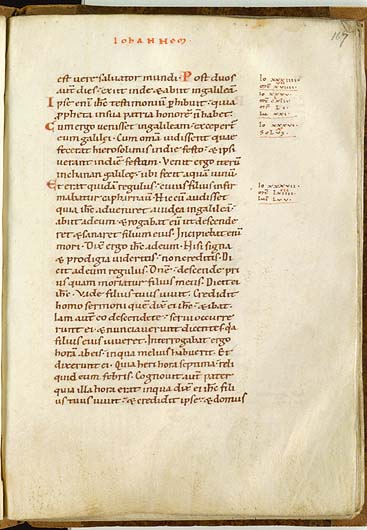 IOHANNEM
167
est vere salvator mundi. Post duos
aut dies. exiit inde & abiit in galileā.
Ipse enī ihc testimoniū phibuit. quia
ppheta in sua patria honorē n̄ habet.
Cum ergo venisset in galileam. excepert
eum galilei. Cum omīa vidissent quae
fecerat hierosolimis in die festo. & ipsi
venerant in diem festum. Venit ergo iterū
in chanan galileę. ubi fecit aquā vinū.
Et erat quidā regulus. cuius filius infir
mabatur capharnaū. Hic cū audisset
quia ihc adveniret a iudea in galileā.
abiit ad eum. & rogabat eū ut descende
ret & sanaret filium eius. Incipiebat enī
mori. Dix ergo ihc ad eum. Nisi signa
& prodigia videritis. non creditis. Di
cit ad eum regulus. Dne. descende pri
us quam moriatur filius meus. Dicit ei
ihc. Vade. filius tuus vivit. Credidit
homo sermoni quē dix ei ihc. & ibat.
Iam aut eo descendente. servi occurre
runt ei. & nunciaverunt dicentes. qa
filius eius viveret. Interrogabat ergo
horā ab eis. in qua melius habuerit. Et
dixerunt ei. Quia heri hora septima. reli
quid eum febris. Cognovit aut pater
quia illa hora erat in qua dix ei ihc. fili
us tuus vivit. & credidit ipse. & domus
Io XXXIIII.
Io XXXV.
Lu XXI.
Io XXXVI.
Solus
Io XXXVII.
Luc LXV.